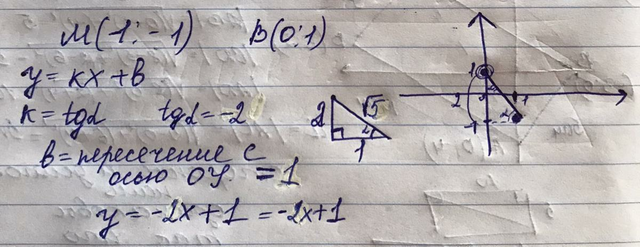 M(1;-1) B(0;1)
y=kx+b
k=tgα tgα=-2
b=пересечение с
осью ОУ =1
y=-2x+1=-2x+1
2 √5
1
1
2 1
-1